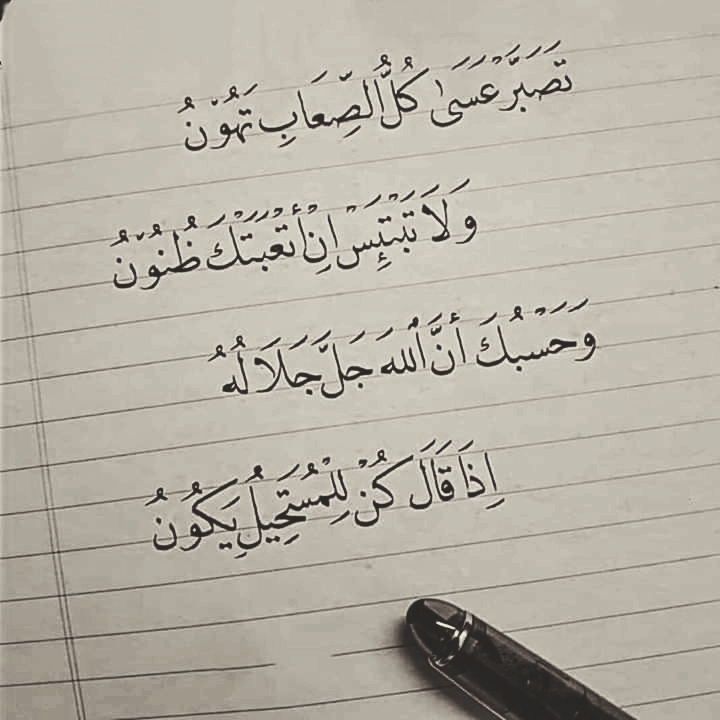 تَصَبَّرْ عَسَىٰ كُلُّ الصِّعَابِ تَهُوْنُ
وَلَا تَبْتَئِسْ اِنْ أَتْعَبَتْكَ ظُنُوْنُ
وَحَسْبُكَ أَنَّ اللهَ جَلَّ جَلَالُهُ
اِذَا قَالَ كُنْ لِلْمُسْتَحِيلُ يَكُوْنُ